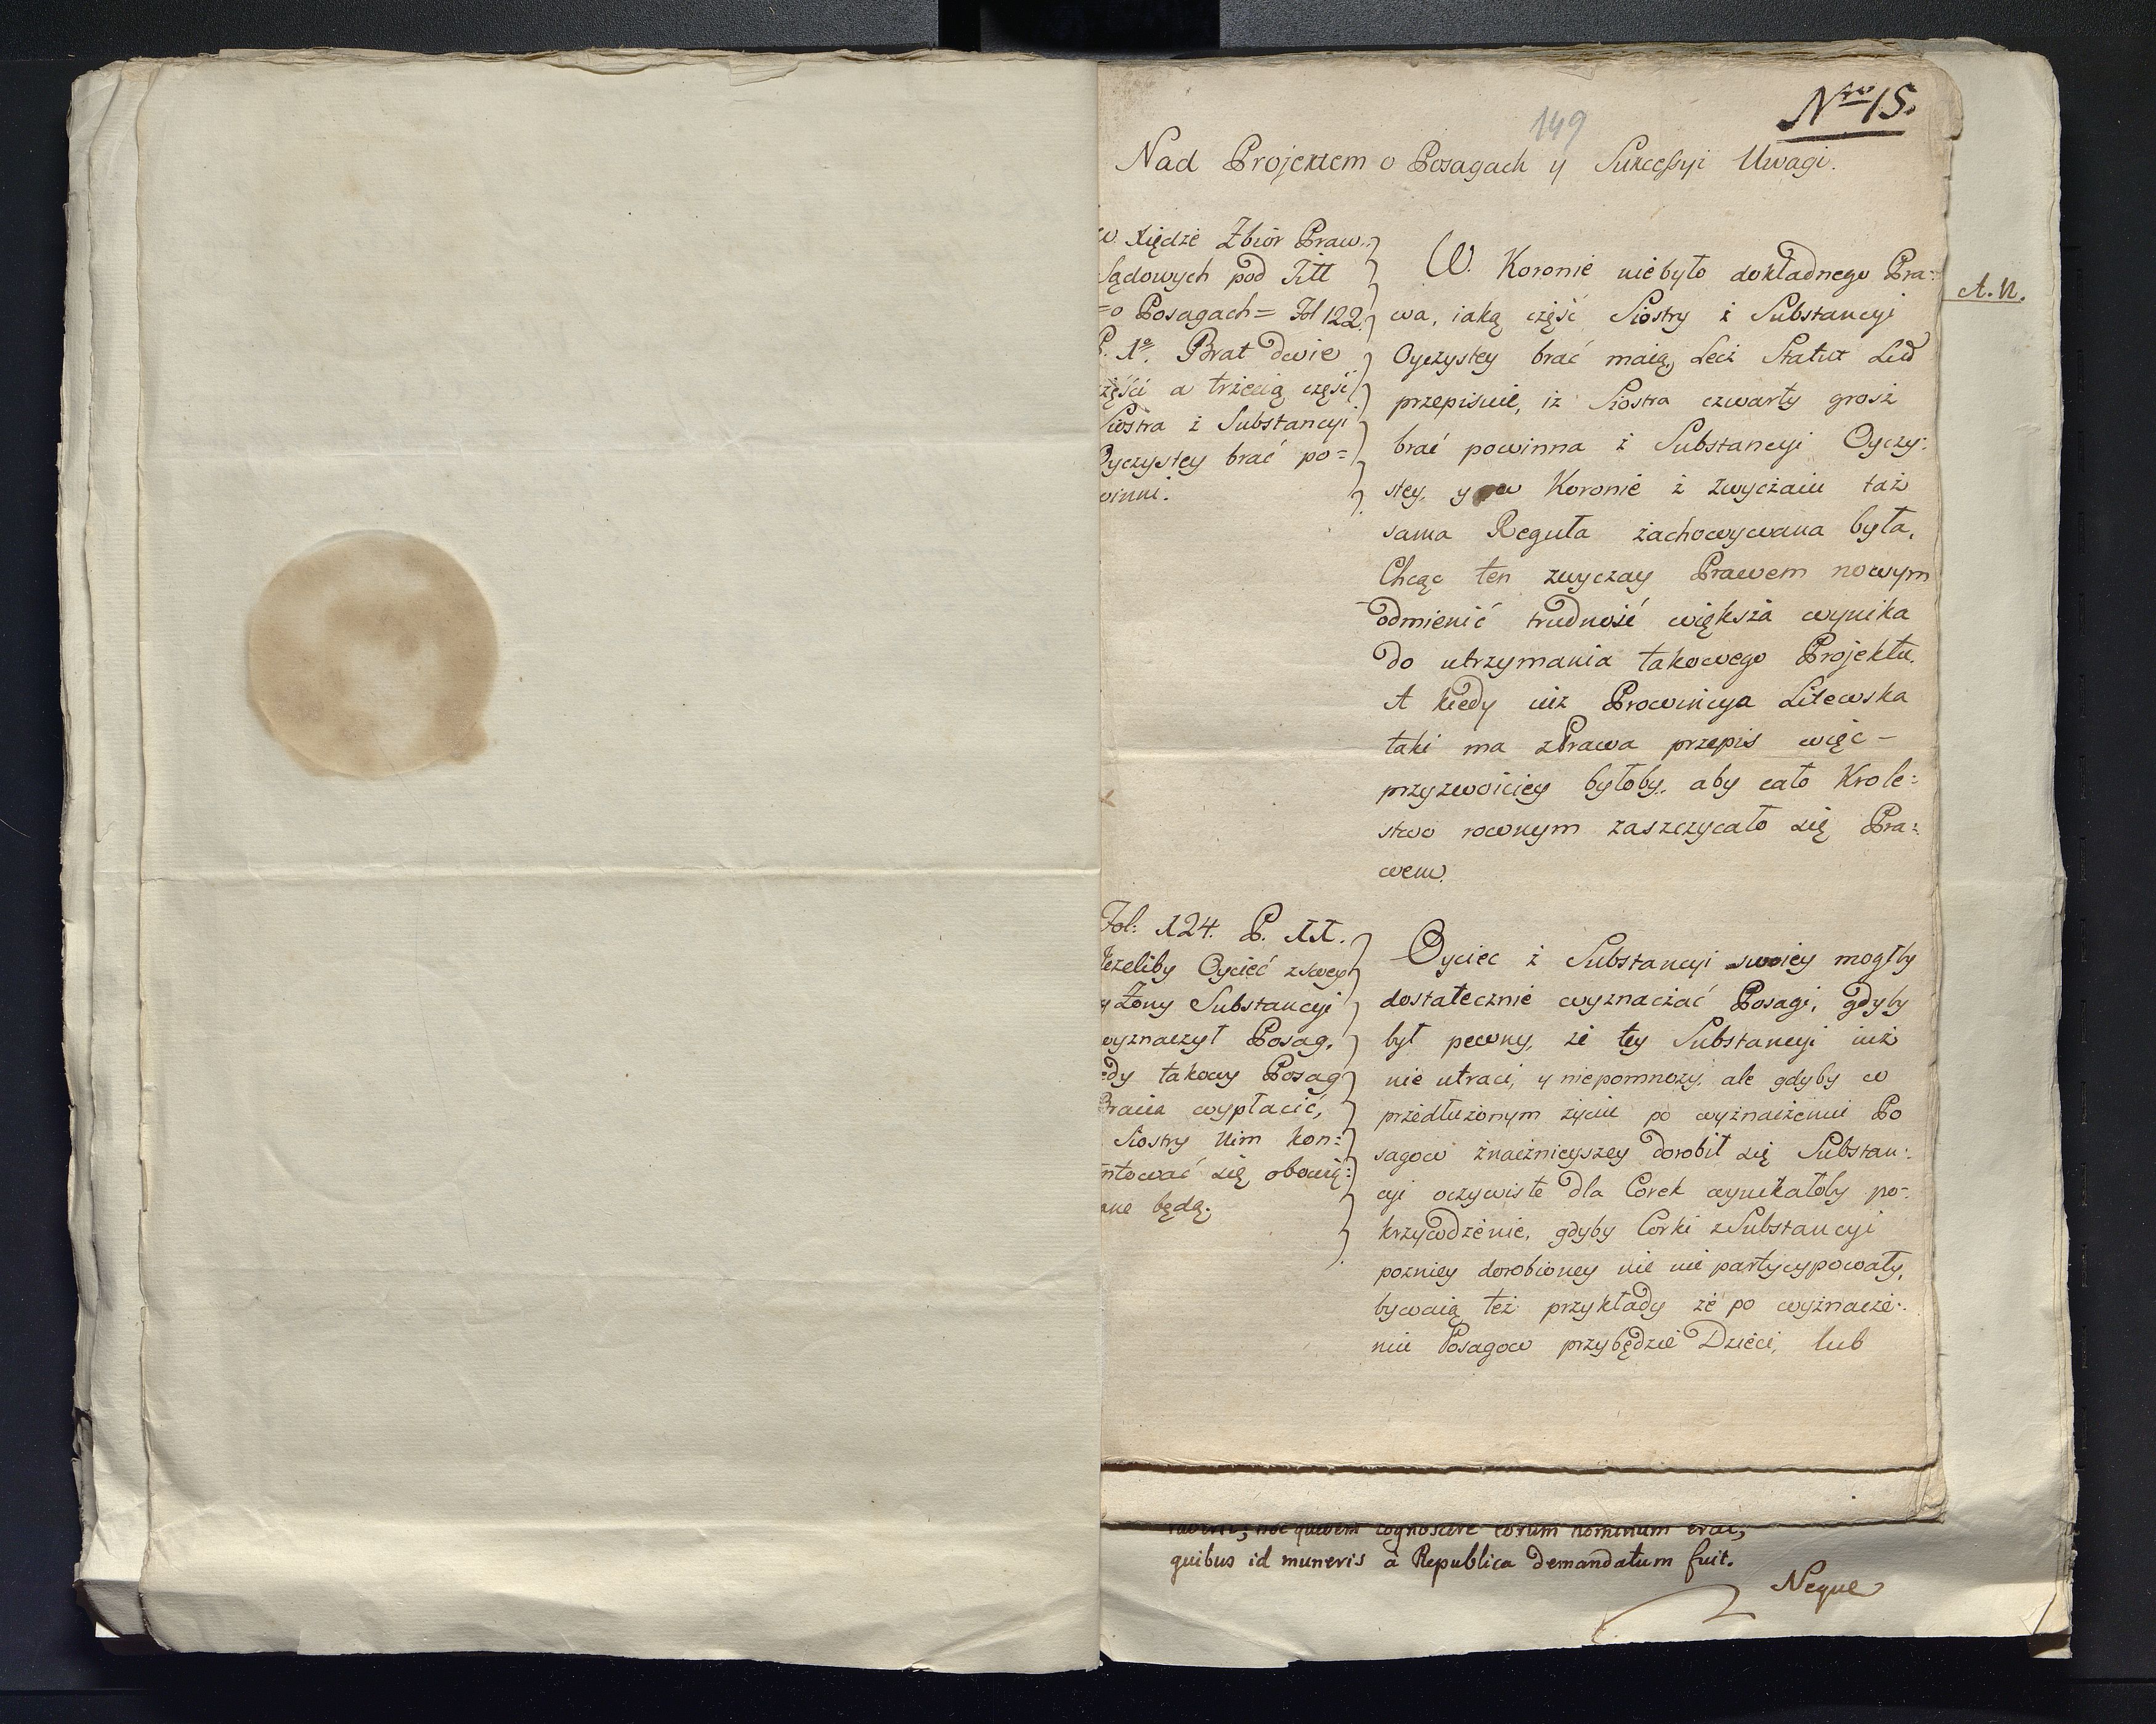 Nro 15.
149
Nad Projektem o Posagach y Sukcessyi Uwagi.
w Xiędze Zbior Praw
Sądowych pod Titt
=o Posagach= Fol 122.
P. 1o. Brat dwie
częśći a trzecią część
Siostra z Substancyi
Oyczystey brać po=
winni.
W. Koronie niebyło dokładnego Pra:
wa, iaką część Siostry z Substancyi
Oyczystey brać maią, Lecz Statut Lid
przepisuie, iż Siostra czwarty grosz
brać powinna z Substancyi Oyczy:
stey, y w Koronie z zwyczaiu taż
sama Reguła zachowywana była.
Chcąc ten zwyczay Prawem nowym
odmienić trudność większa wynika
do utrzymania takowego Projektu.
A kiedy iuż Prowincya Litewska
taki ma z Prawa przepis więc -
przyzwoiciey byłoby, aby cało Krole:
stwo rownym zaszczycało się Pra:
wem.
A. N.
Fol: 124. P. 11.
Jezeliby Oyciec z swey
y Zony Substancyi
wyznaczył Posag,
tedy takowy Posag
Bracia wypłacić,
Siostry Nim kon:
ntować się obowią:
ane będą.
Oyciec z Substancyi swoiey mogłby
dostatecznie wyznaczać Posagi, gdyby
był pewny, że tey Substancyi iuż
nie utraci, y niepomnoży, ale gdyby w
przedłużonym życiu po wyznaczeniu Po
sagow znacznieyszey dorobił się Substan:
cyi oczywiste dla Corek wynikałoby po:
krzywdzenie, gdyby Corki z Substancyi
pozniey dorobioney nic nie partycypowały,
bywaią też przykłady że po wyznacze:
niu Posagow przybędzie Dzieci, lub
cognoscere eorum hominum erat,
quibus id muneris à Republica demandatum fuit.
Neque